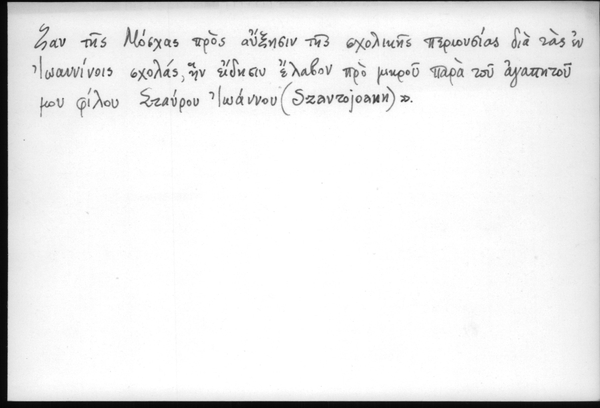 ζαν τῆς Μόσχας πρὸς αὔξησιν τῆς σχολικῆς περιουσίας διὰ τὰς ἐν
Ἰωαννίνοις σχολάς, ἣν εἴδησιν ἔλαβον πρὸ μικροῦ παρὰ τοῦ ἀγαπητοῦ
μου φίλου Σταύρου Ἰωάννου (Szantojoann) ».